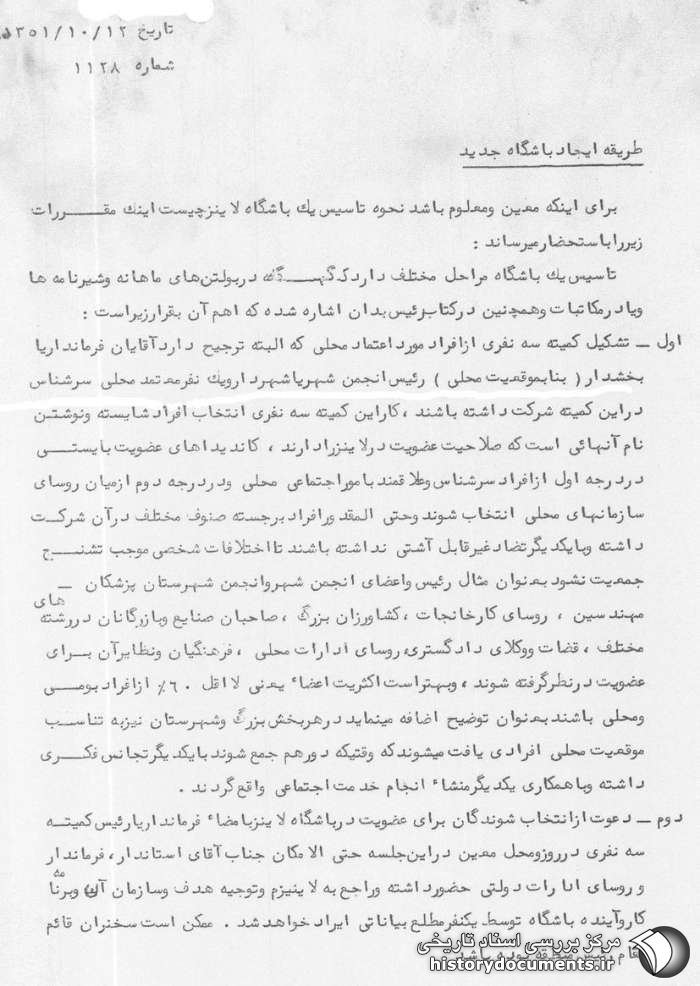 تاریخ ۱۳۵۱/۱۰/۱۲
شماره ۱۱۲۸
طریقه ایجاد باشگاه جدید
برای اینکه معین ومعلوم باشد نحوه تاسیس یک باشگاه لاینز چیست اینک مقـــررات
زیررا باستحضار میرساند :
تاسیس یک باشگاه مراحل مختلف دارد که گهـــگاه در بولتن‌های ماهانه وشیرنامه ها
ویادر مکاتبات وهمچنین در کتاب رئیس بدان اشاره شده که اهم آن بقرار زیر است :
اول – تشکیل کمیته سه نفری از افراد مورد اعتماد محلی که البته ترجیح دارد آقایان فرماندار یا
بخشدار ( بنا بموقعیت محلی ) رئیس انجمن شهر یا شهردار ویک نفر معتمد محلی سرشناس
در این کمیته شرکت داشته باشند ، کار این کمیته سه نفری انتخاب افراد شایسته ونوشتن
نام آنهائی است که صلاحیت عضویت در لاینز را دارند ، کاندیداهای عضویت بایستـــی
در درجه اول از افراد سرشناس وعلاقمند بامور اجتماعی محلی ودر درجه دوم از میان روسای
سازمانهای محلی انتخاب شوند وحتی المقدور افراد برجسته صنوف مختلف در آن شرکت
داشته وبا یکدیگر تضاد غیر قابل آشتی نداشته باشند تا اختلافات شخصی موجب تشنـــج
جمعیت نشود بعنوان مثال رئیس واعضای انجمن شهر وانجمن شهرستان پزشکان –
مهندسین ، روسای کارخانجات ، کشاورزان بزرگ ، صاحبان صنایع وبازرگانان در رشته های
مختلف ، قضات ووکلای دادگستری، روسای ادارات محلی ، فرهنگیان ونظایر آن بـــرای
عضویت در نظر گرفته شوند ، وبهتر است اکثریت اعضاء یعنی لااقل ۶۰٪ از افراد بومـــی
ومحلی باشند بعنوان توضیح اضافه مینماید در هر بخش بزرگ وشهرستان نیز به تناسب
موقعیت محلی افرادی یافت میشوند که وقتیکه دور هم جمع شوند بایکدیگر تجانس فکـــری
داشته وبا همکاری یکدیگر منشاء انجام خدمت اجتماعی واقع گردند .
دوم – دعوت از انتخاب شوندگان برای عضویت در باشگاه لاینز بامضاء فرماندار یا رئیس کمیتـــه
سه نفری در روز ومحل معین در این جلسه حتی الامکان جناب آقای استاندار، فرماندار
و روسای ادارات دولتی حضور داشته وراجع به لاینیزم وتوجیه هدف وسازمان آن وبرنامه
کار وآینده باشگاه توسط یکنفر مطلع بیاناتی ایراد خواهد شد . ممکن است سخنران قائم
مقام رئیس منطقه بوده باشد
مرکز بررسی اسناد تاریخی
historydocuments.ir